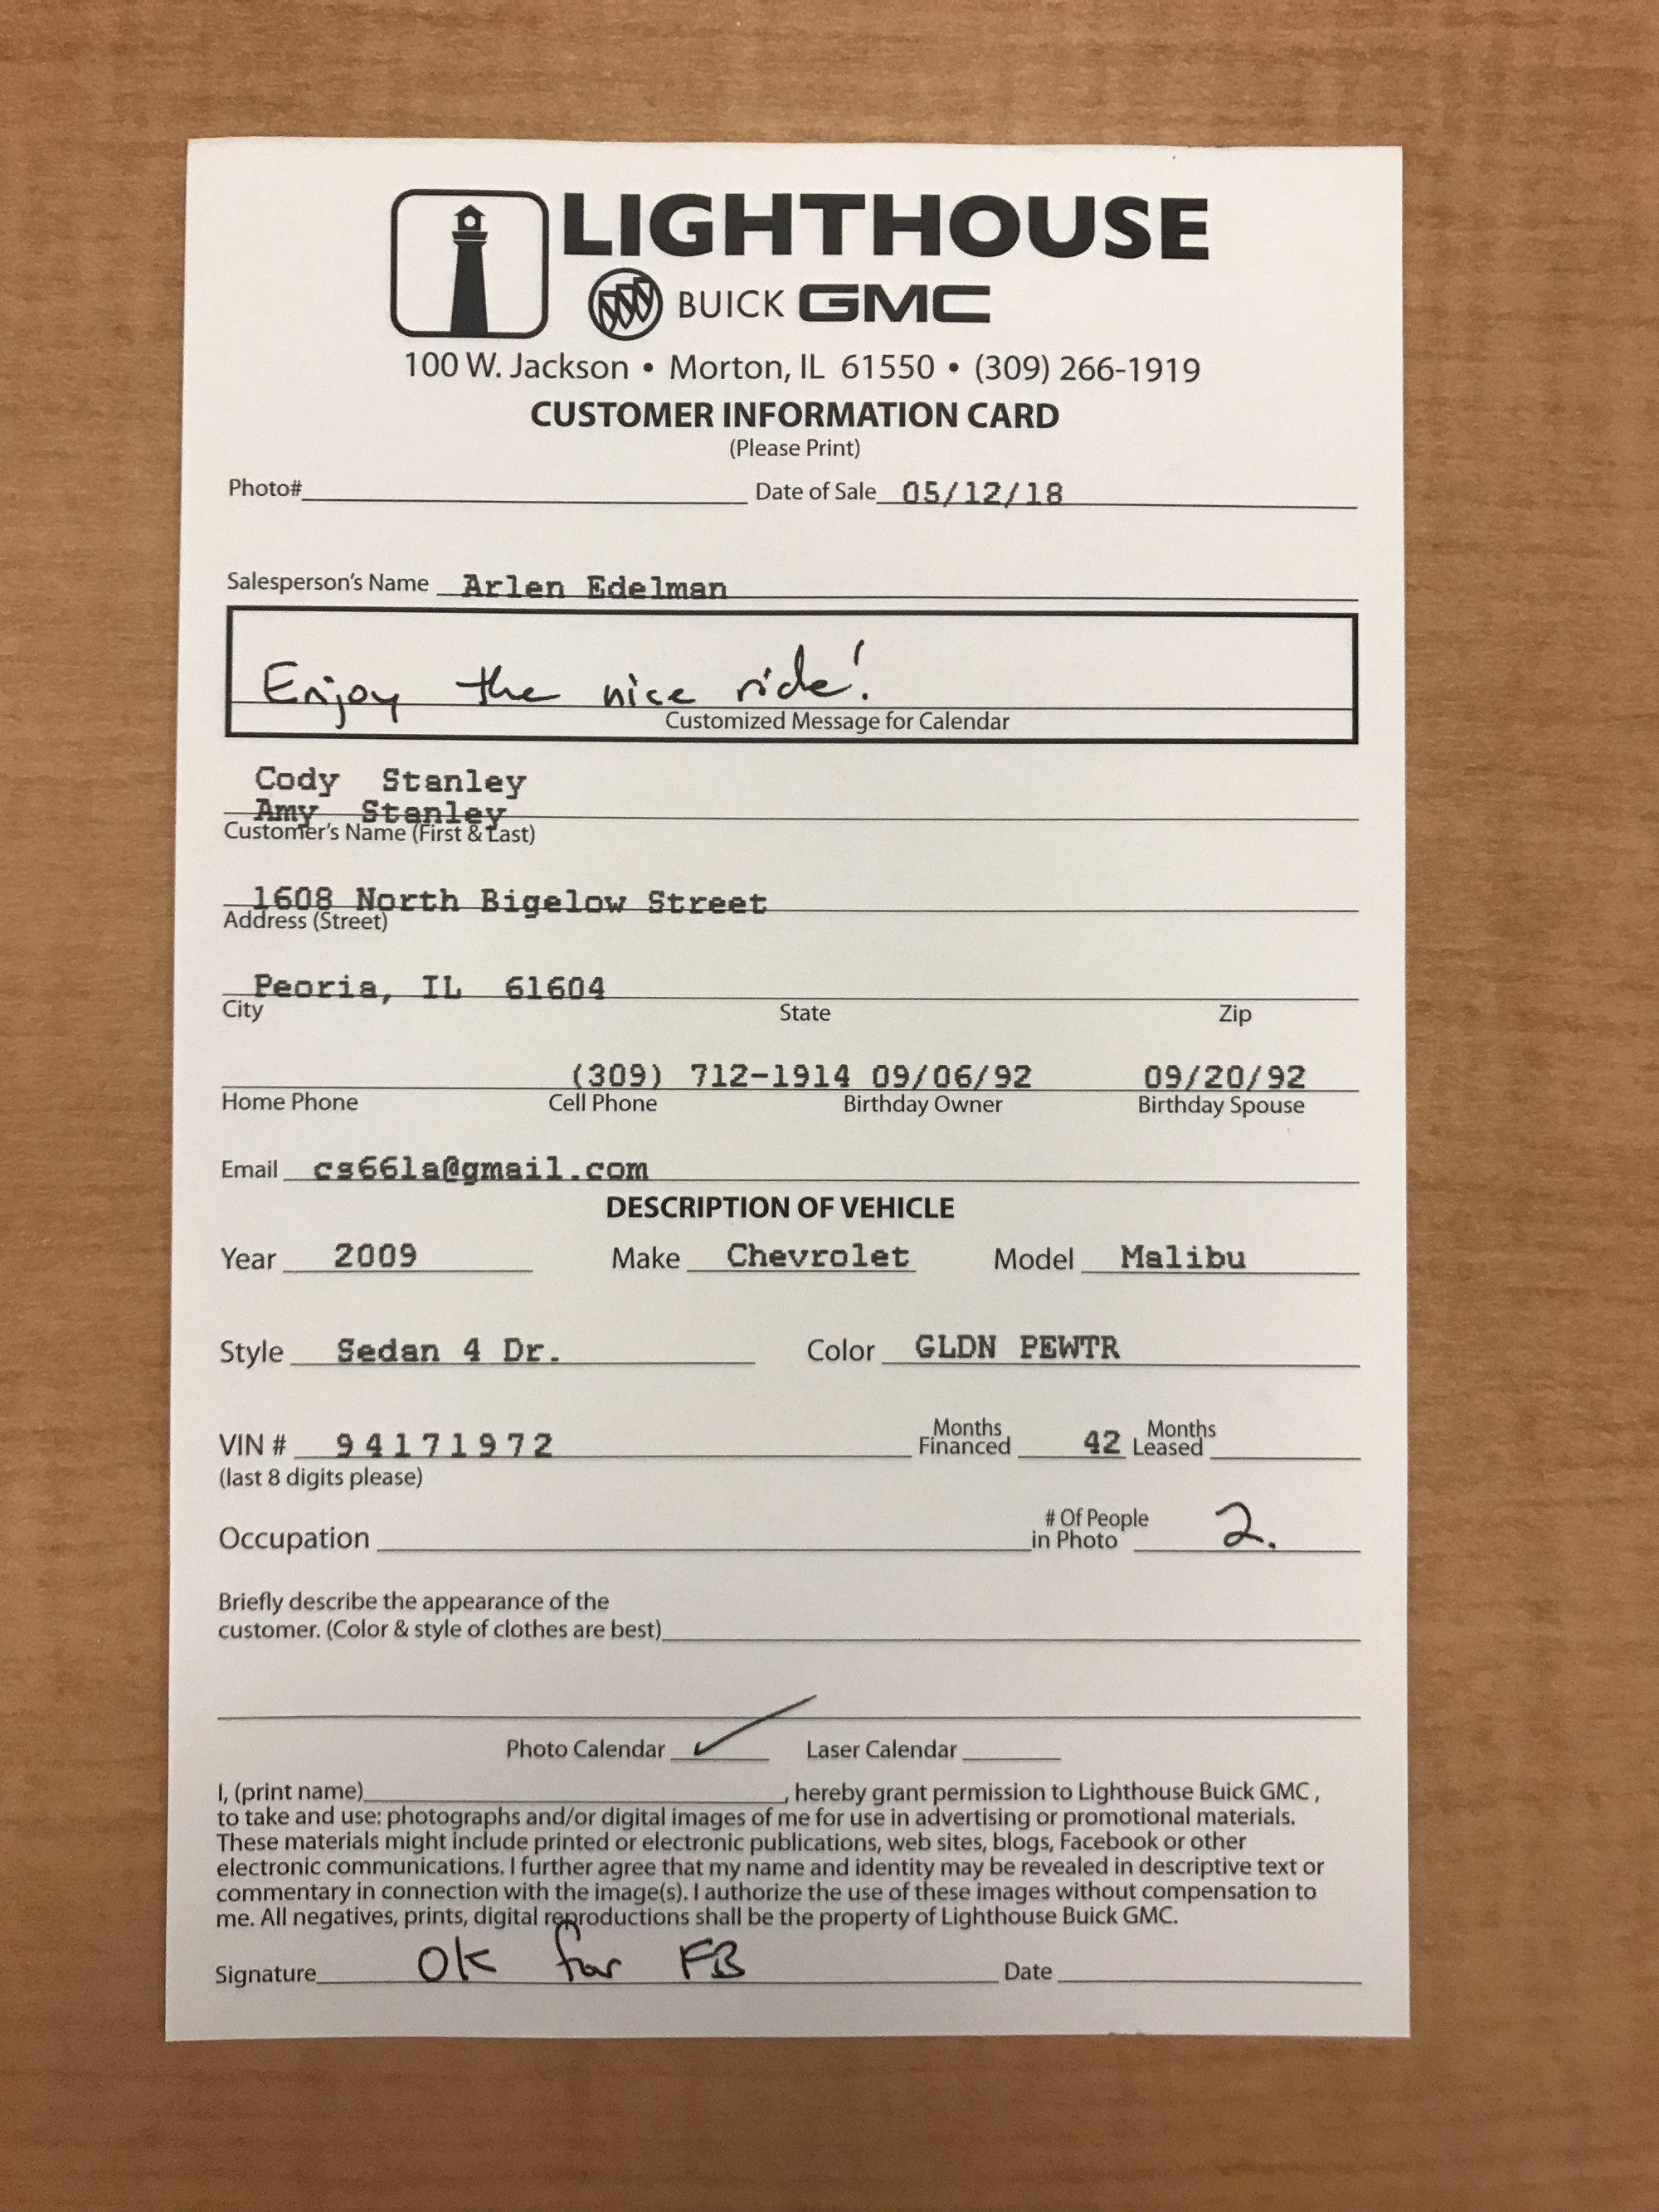 LIGHTHOUSE
BUICK GMC
100 W. Jackson • Morton, IL 61550 • (309) 266-1919
CUSTOMER INFORMATION CARD
(Please Print)
Photo# Date of Sale 05/12/18
Salesperson's Name Arlen Edelman
Enjoy the nice ride!
Customized Message for Calendar
Cody Stanley
Amy Stanley
Customer's Name (First & Last)
1608 North Bigelow Street
Address (Street)
Peoria, IL 61604
City State Zip
(309) 712-1914 09/06/92 09/20/92
Home Phone Cell Phone Birthday Owner Birthday Spouse
Email cs661a@gmail.com
DESCRIPTION OF VEHICLE
Year 2009 Make Chevrolet Model Malibu
Style Sedan 4 Dr. Color GLDN PEWTR
VIN # 94171972 Months Financed 42 Months Leased
(last 8 digits please)
Occupation # Of People in Photo 2.
Briefly describe the appearance of the
customer. (Color & style of clothes are best)
Photo Calendar ✓ Laser Calendar
I, (print name) , hereby grant permission to Lighthouse Buick GMC ,
to take and use: photographs and/or digital images of me for use in advertising or promotional materials.
These materials might include printed or electronic publications, web sites, blogs, Facebook or other
electronic communications. I further agree that my name and identity may be revealed in descriptive text or
commentary in connection with the image(s). I authorize the use of these images without compensation to
me. All negatives, prints, digital reproductions shall be the property of Lighthouse Buick GMC.
Signature OK for FB Date